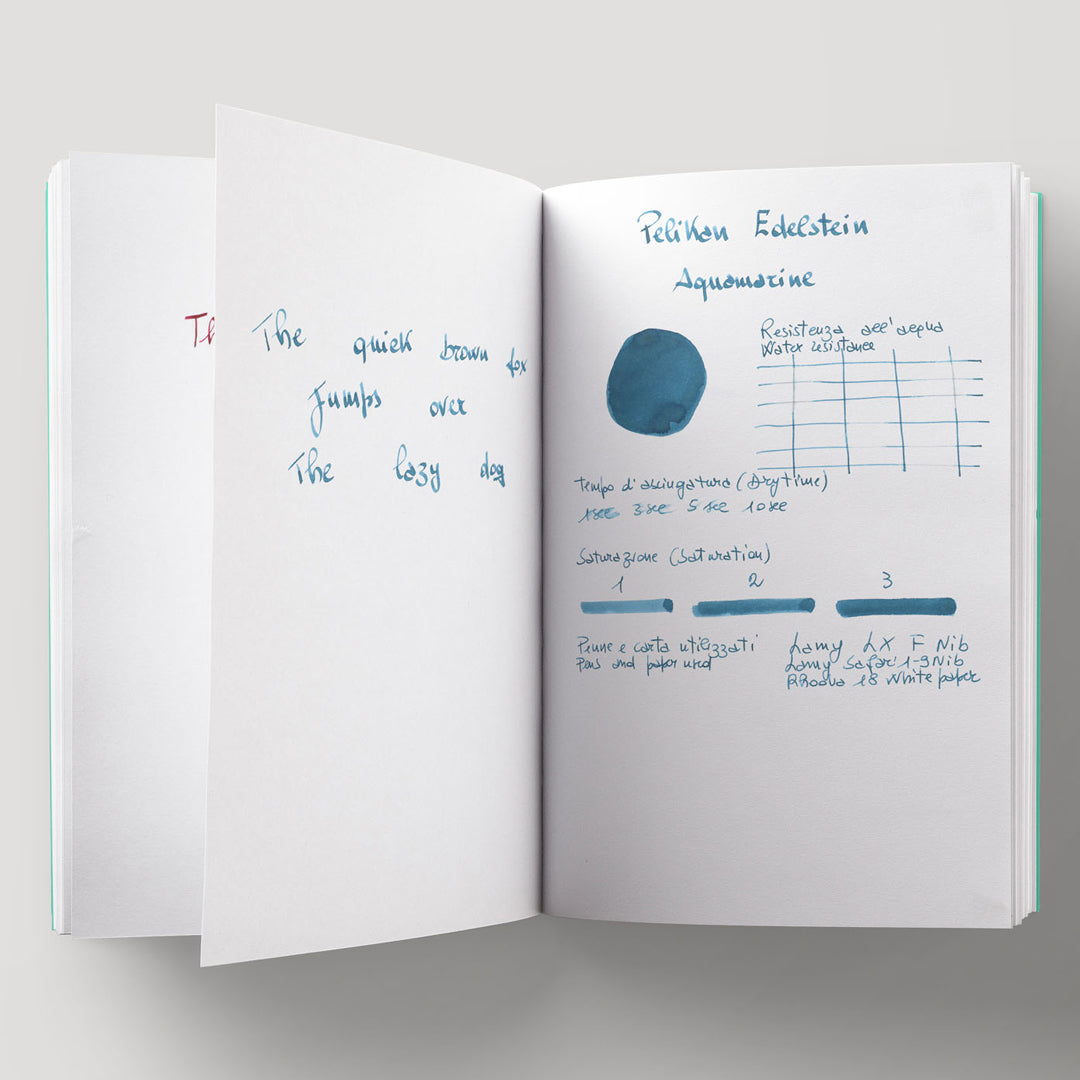 Th
The quick brown fox
Jumps over
The lazy dog
Pelikan Edelstein
Aquamarine
Resistenza all'acqua
Water resistance
Tempo d'asciugatura (Drytime)
1 sec 3 sec 5 sec 10 sec
Saturazione (Saturation)
1 2 3
Penne e carta utilizzati
Pens and paper used
Lamy LX F Nib
Lamy Safari 1-9 Nib
Rhodia 18 White paper